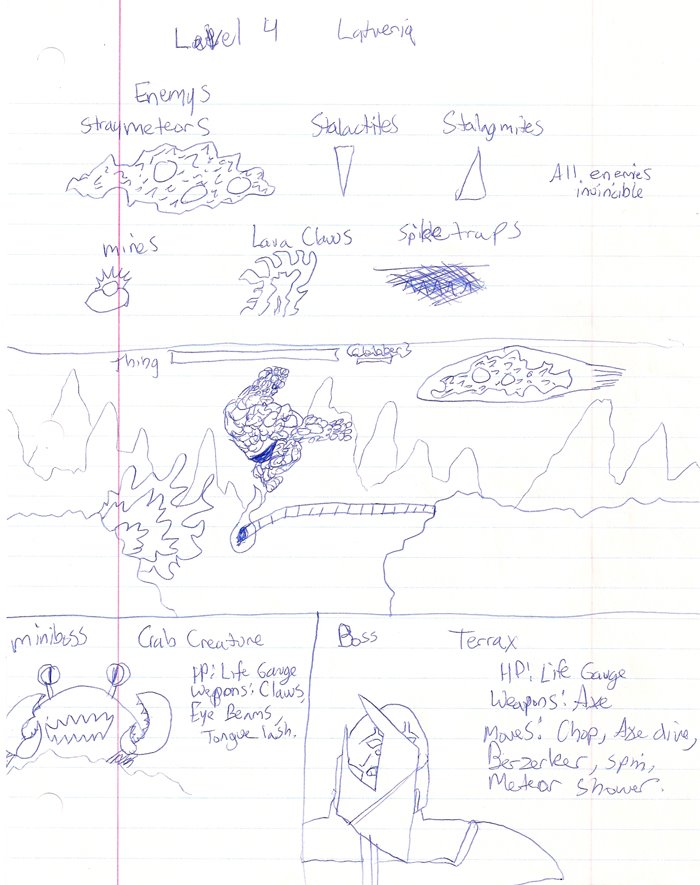 Level 4 Latveria
Enemys
Straymeteors Stalactites Stalagmites
All enemies
invincible
mines Lava Claws Spike traps
Thing
miniboss Crab Creature
HP: Life Gauge
Weapons: Claws,
Eye Beams,
Tongue lash.
Boss Terrax
HP: Life Gauge
Weapons: Axe
Moves: Chop, Axe dive,
Berzerker, spin,
Meteor shower.